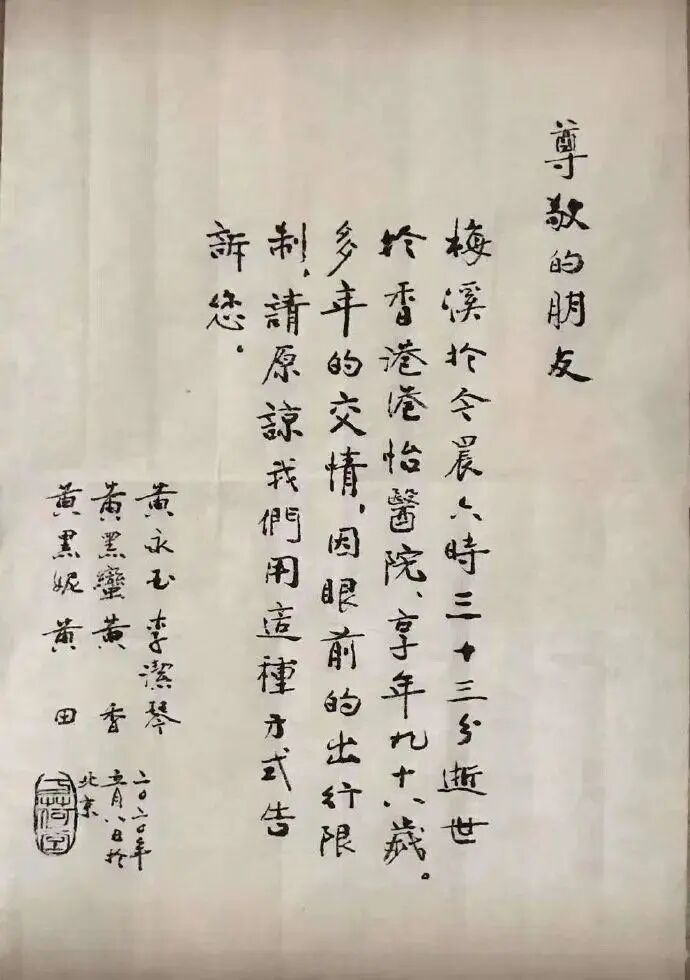 尊敬的朋友
梅溪扵今晨六時三十三分逝世
扵香港港怡醫院、享年九十八歲。
多年的交情,因眼前的出行限
制、請原諒我們用這種方式告
訴您。
黃永玉 李潔琴
黃黑蠻 黃香
黃黑妮 黃田
二〇二〇年
五月八日扵
北京